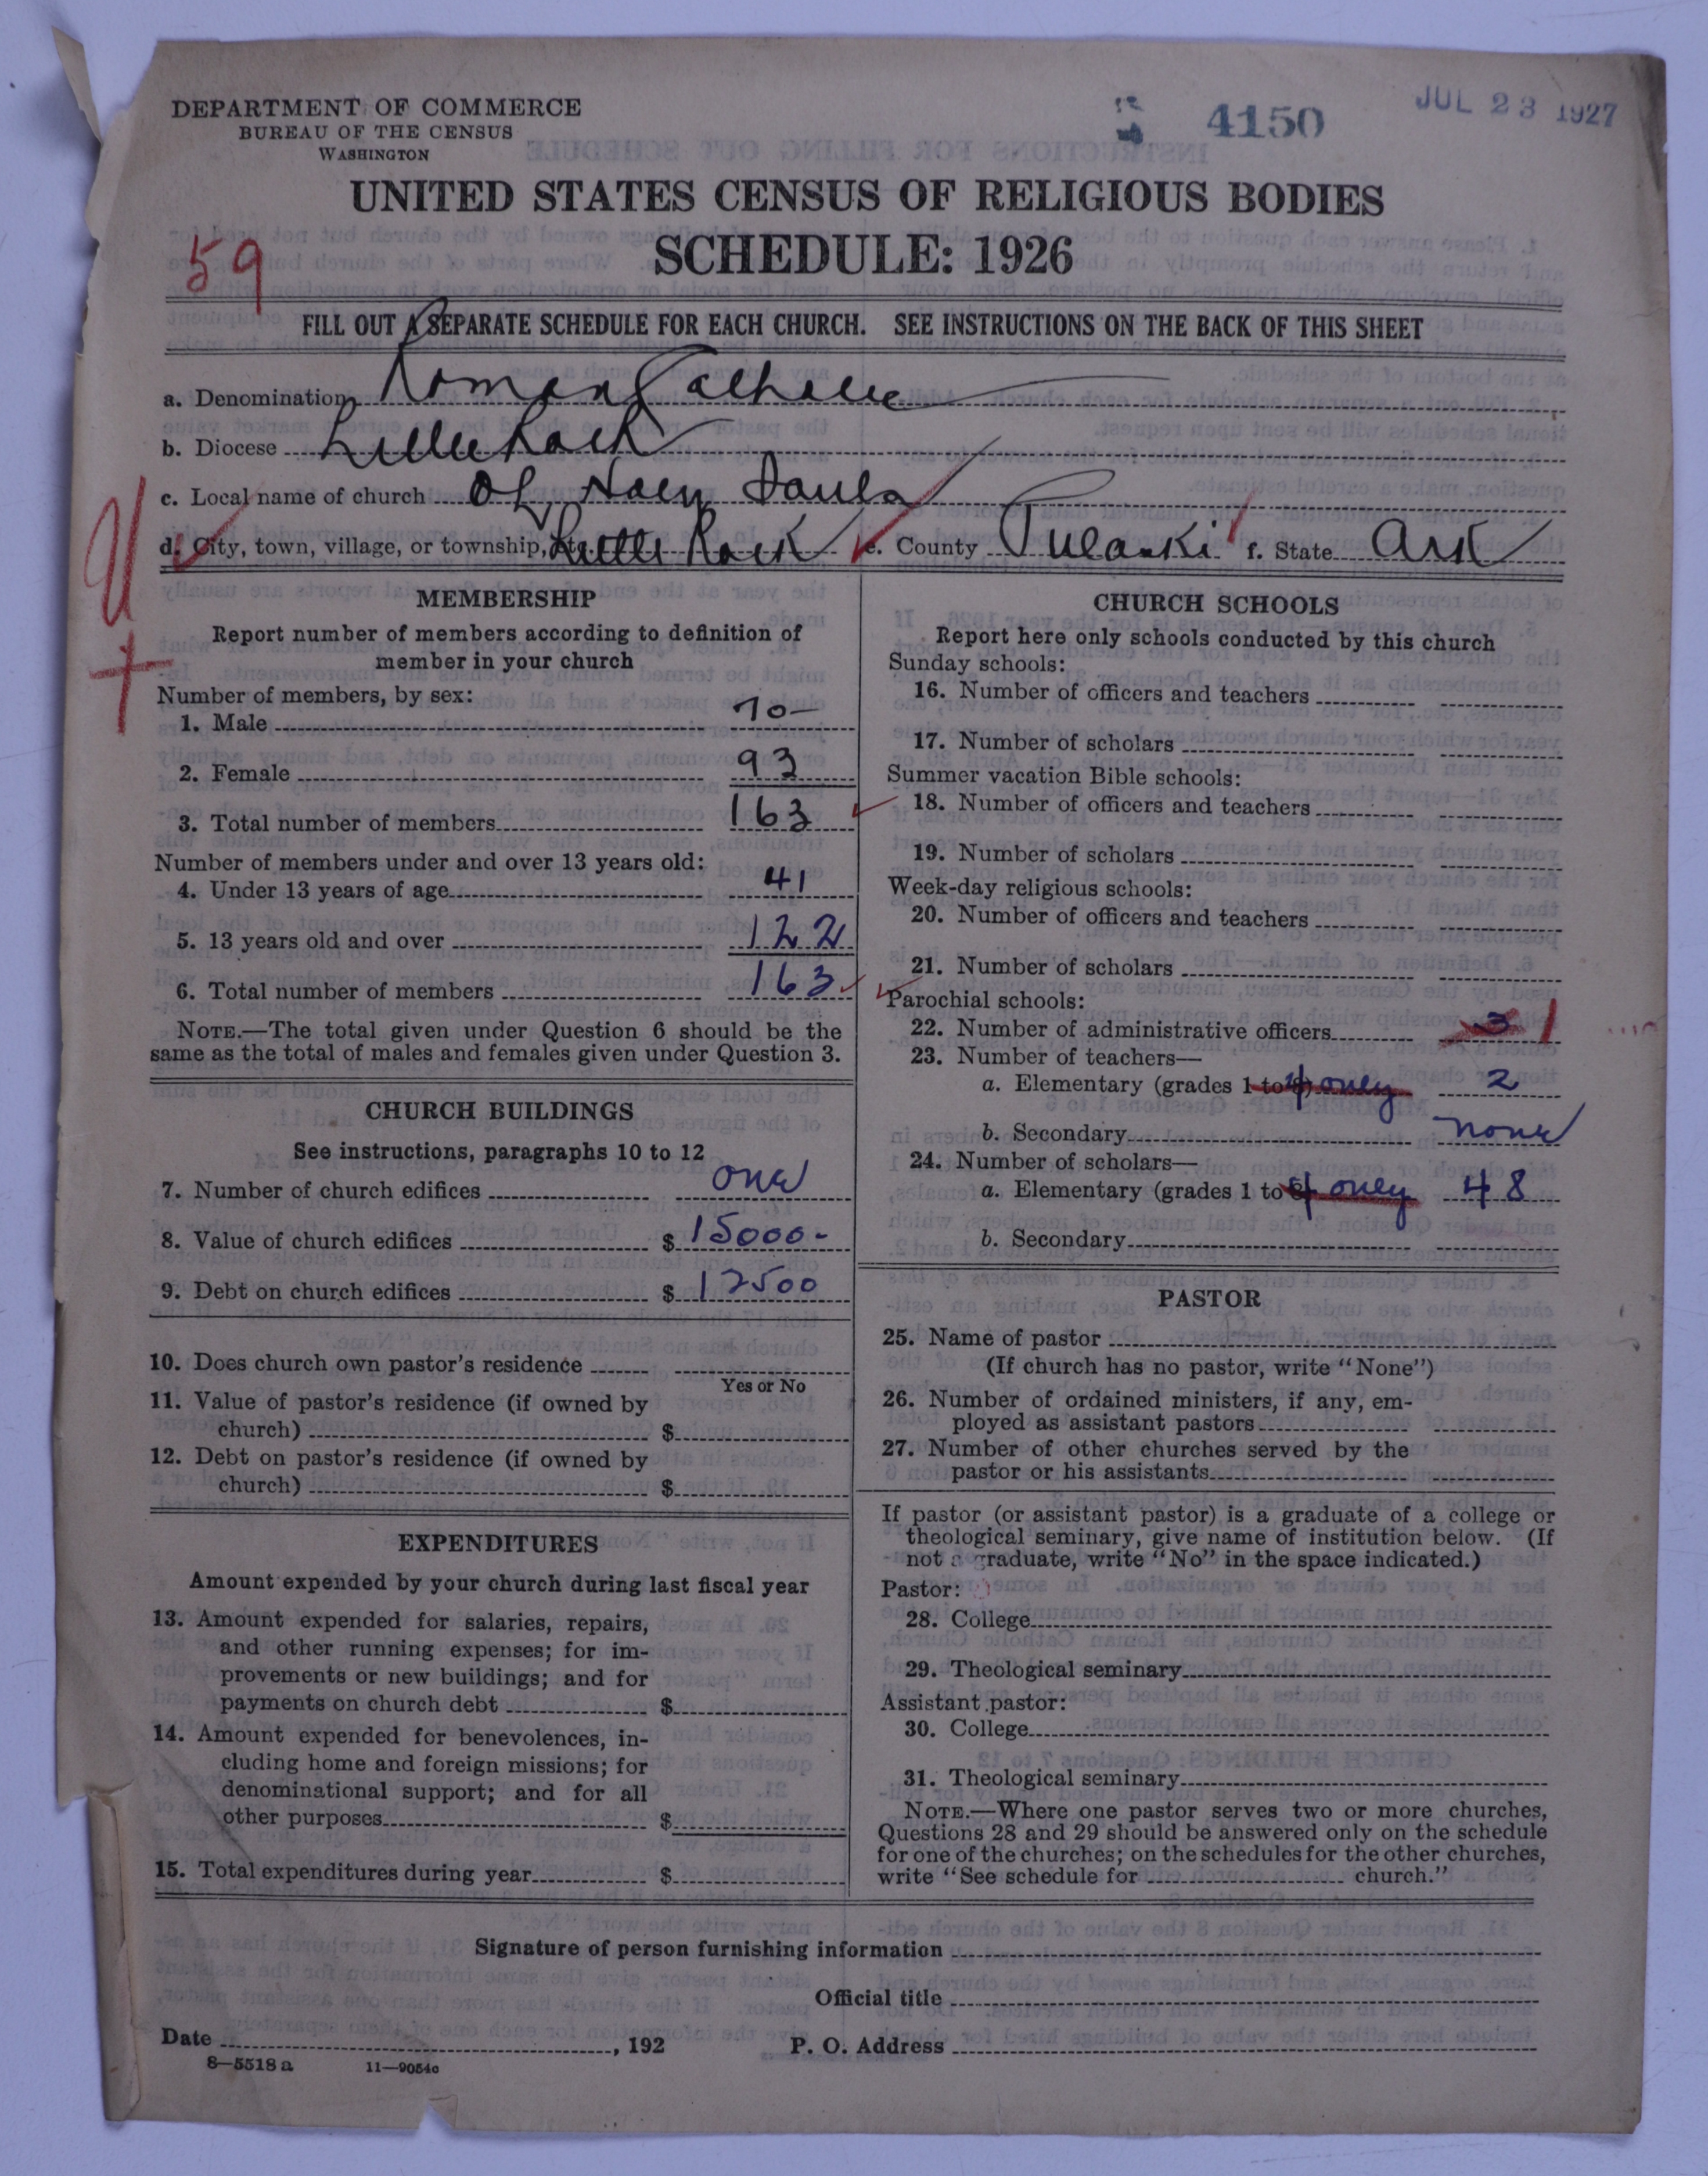 DEPARTMENT OF COMMERCE
BUREAU OF THE CENSUS
WASHINGTON
4150
JUL 23 1927
UNITED STATES CENSUS OF RELIGIOUS BODIES
SCHEDULE: 1926
59
FILL OUT A SEPARATE SCHEDULE FOR EACH CHURCH. SEE INSTRUCTIONS ON THE BACK OF THIS SHEET
a. Denomination Roman Catholic
b. Diocese Little Rock
c. Local name of church Of Holy Souls
d. City, town, village, or township, etc. Little Rock e. County Pulaski f. State Ark
U
MEMBERSHIP
Report number of members according to definition of
member in your church
Number of members, by sex:
1. Male 70-
2. Female 93
3. Total number of members 163
Number of members under and over 13 years old:
4. Under 13 years of age 41
5. 13 years old and over 122
6. Total number of members 163
NOTE.—The total given under Question 6 should be the
same as the total of males and females given under Question 3.
CHURCH BUILDINGS
See instructions, paragraphs 10 to 12
7. Number of church edifices one
8. Value of church edifices $ 15000-
9. Debt on church edifices $ 12500
10. Does church own pastor's residence
Yes or No
11. Value of pastor's residence (if owned by
church) $
12. Debt on pastor's residence (if owned by
church) $
EXPENDITURES
Amount expended by your church during last fiscal year
13. Amount expended for salaries, repairs,
and other running expenses; for im-
provements or new buildings; and for
payments on church debt $
14. Amount expended for benevolences, in-
cluding home and foreign missions; for
denominational support; and for all
other purposes $
15. Total expenditures during year $
CHURCH SCHOOLS
Report here only schools conducted by this church
Sunday schools:
16. Number of officers and teachers
17. Number of scholars
Summer vacation Bible schools:
18. Number of officers and teachers
19. Number of scholars
Week-day religious schools:
20. Number of officers and teachers
21. Number of scholars
Parochial schools:
22. Number of administrative officers 3 1
23. Number of teachers—
a. Elementary (grades 1 to 4 only 2
b. Secondary none
24. Number of scholars—
a. Elementary (grades 1 to 4 only 48
b. Secondary
PASTOR
25. Name of pastor
(If church has no pastor, write "None")
26. Number of ordained ministers, if any, em-
ployed as assistant pastors
27. Number of other churches served by the
pastor or his assistants
If pastor (or assistant pastor) is a graduate of a college or
theological seminary, give name of institution below. (If
not a graduate, write "No" in the space indicated.)
Pastor:
28. College
29. Theological seminary
Assistant pastor:
30. College
31. Theological seminary
NOTE.—Where one pastor serves two or more churches,
Questions 28 and 29 should be answered only on the schedule
for one of the churches; on the schedules for the other churches,
write "See schedule for church."
Signature of person furnishing information
Official title
Date , 192 P. O. Address
8—5518 a 11—9054c